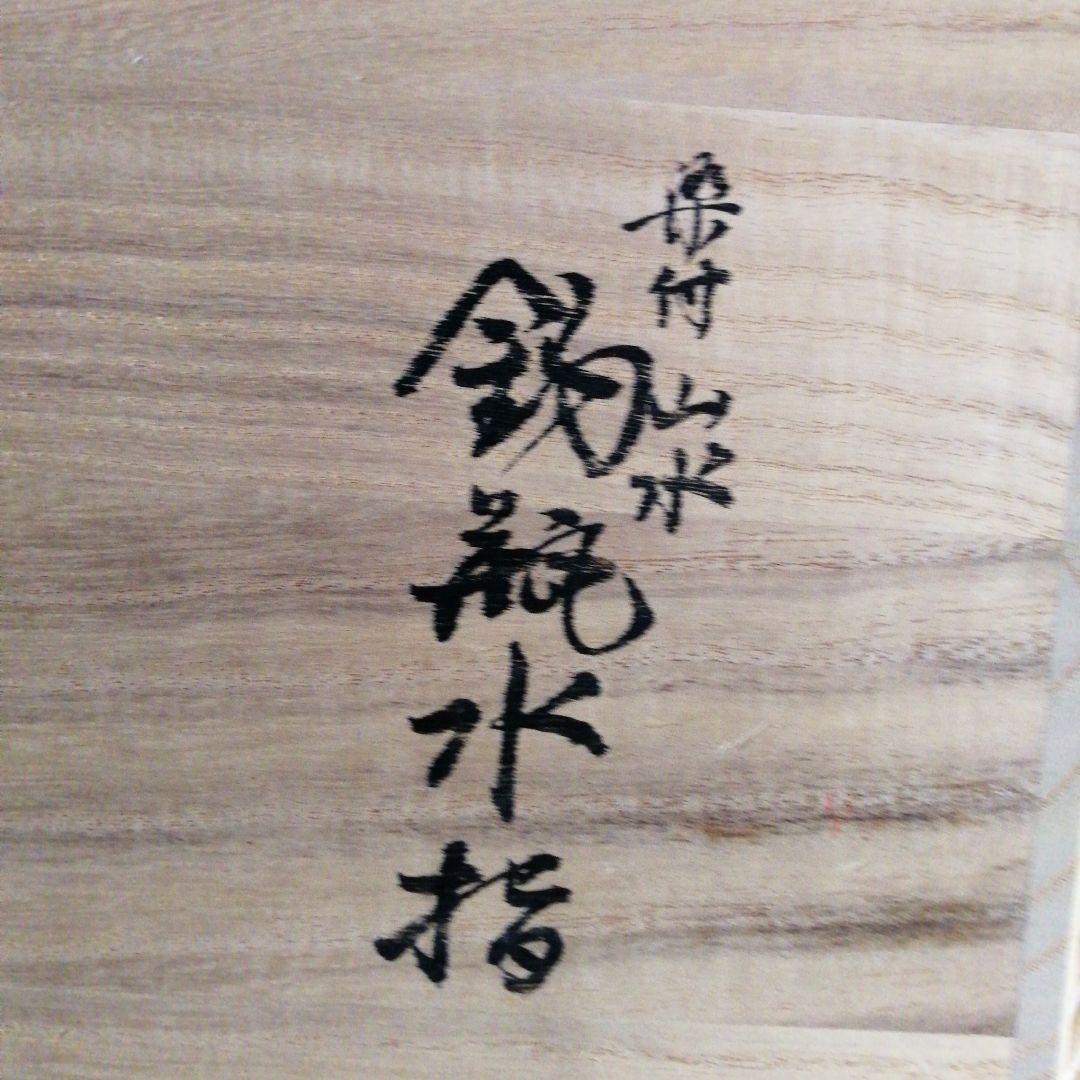 染付
山水
錫瓶水指